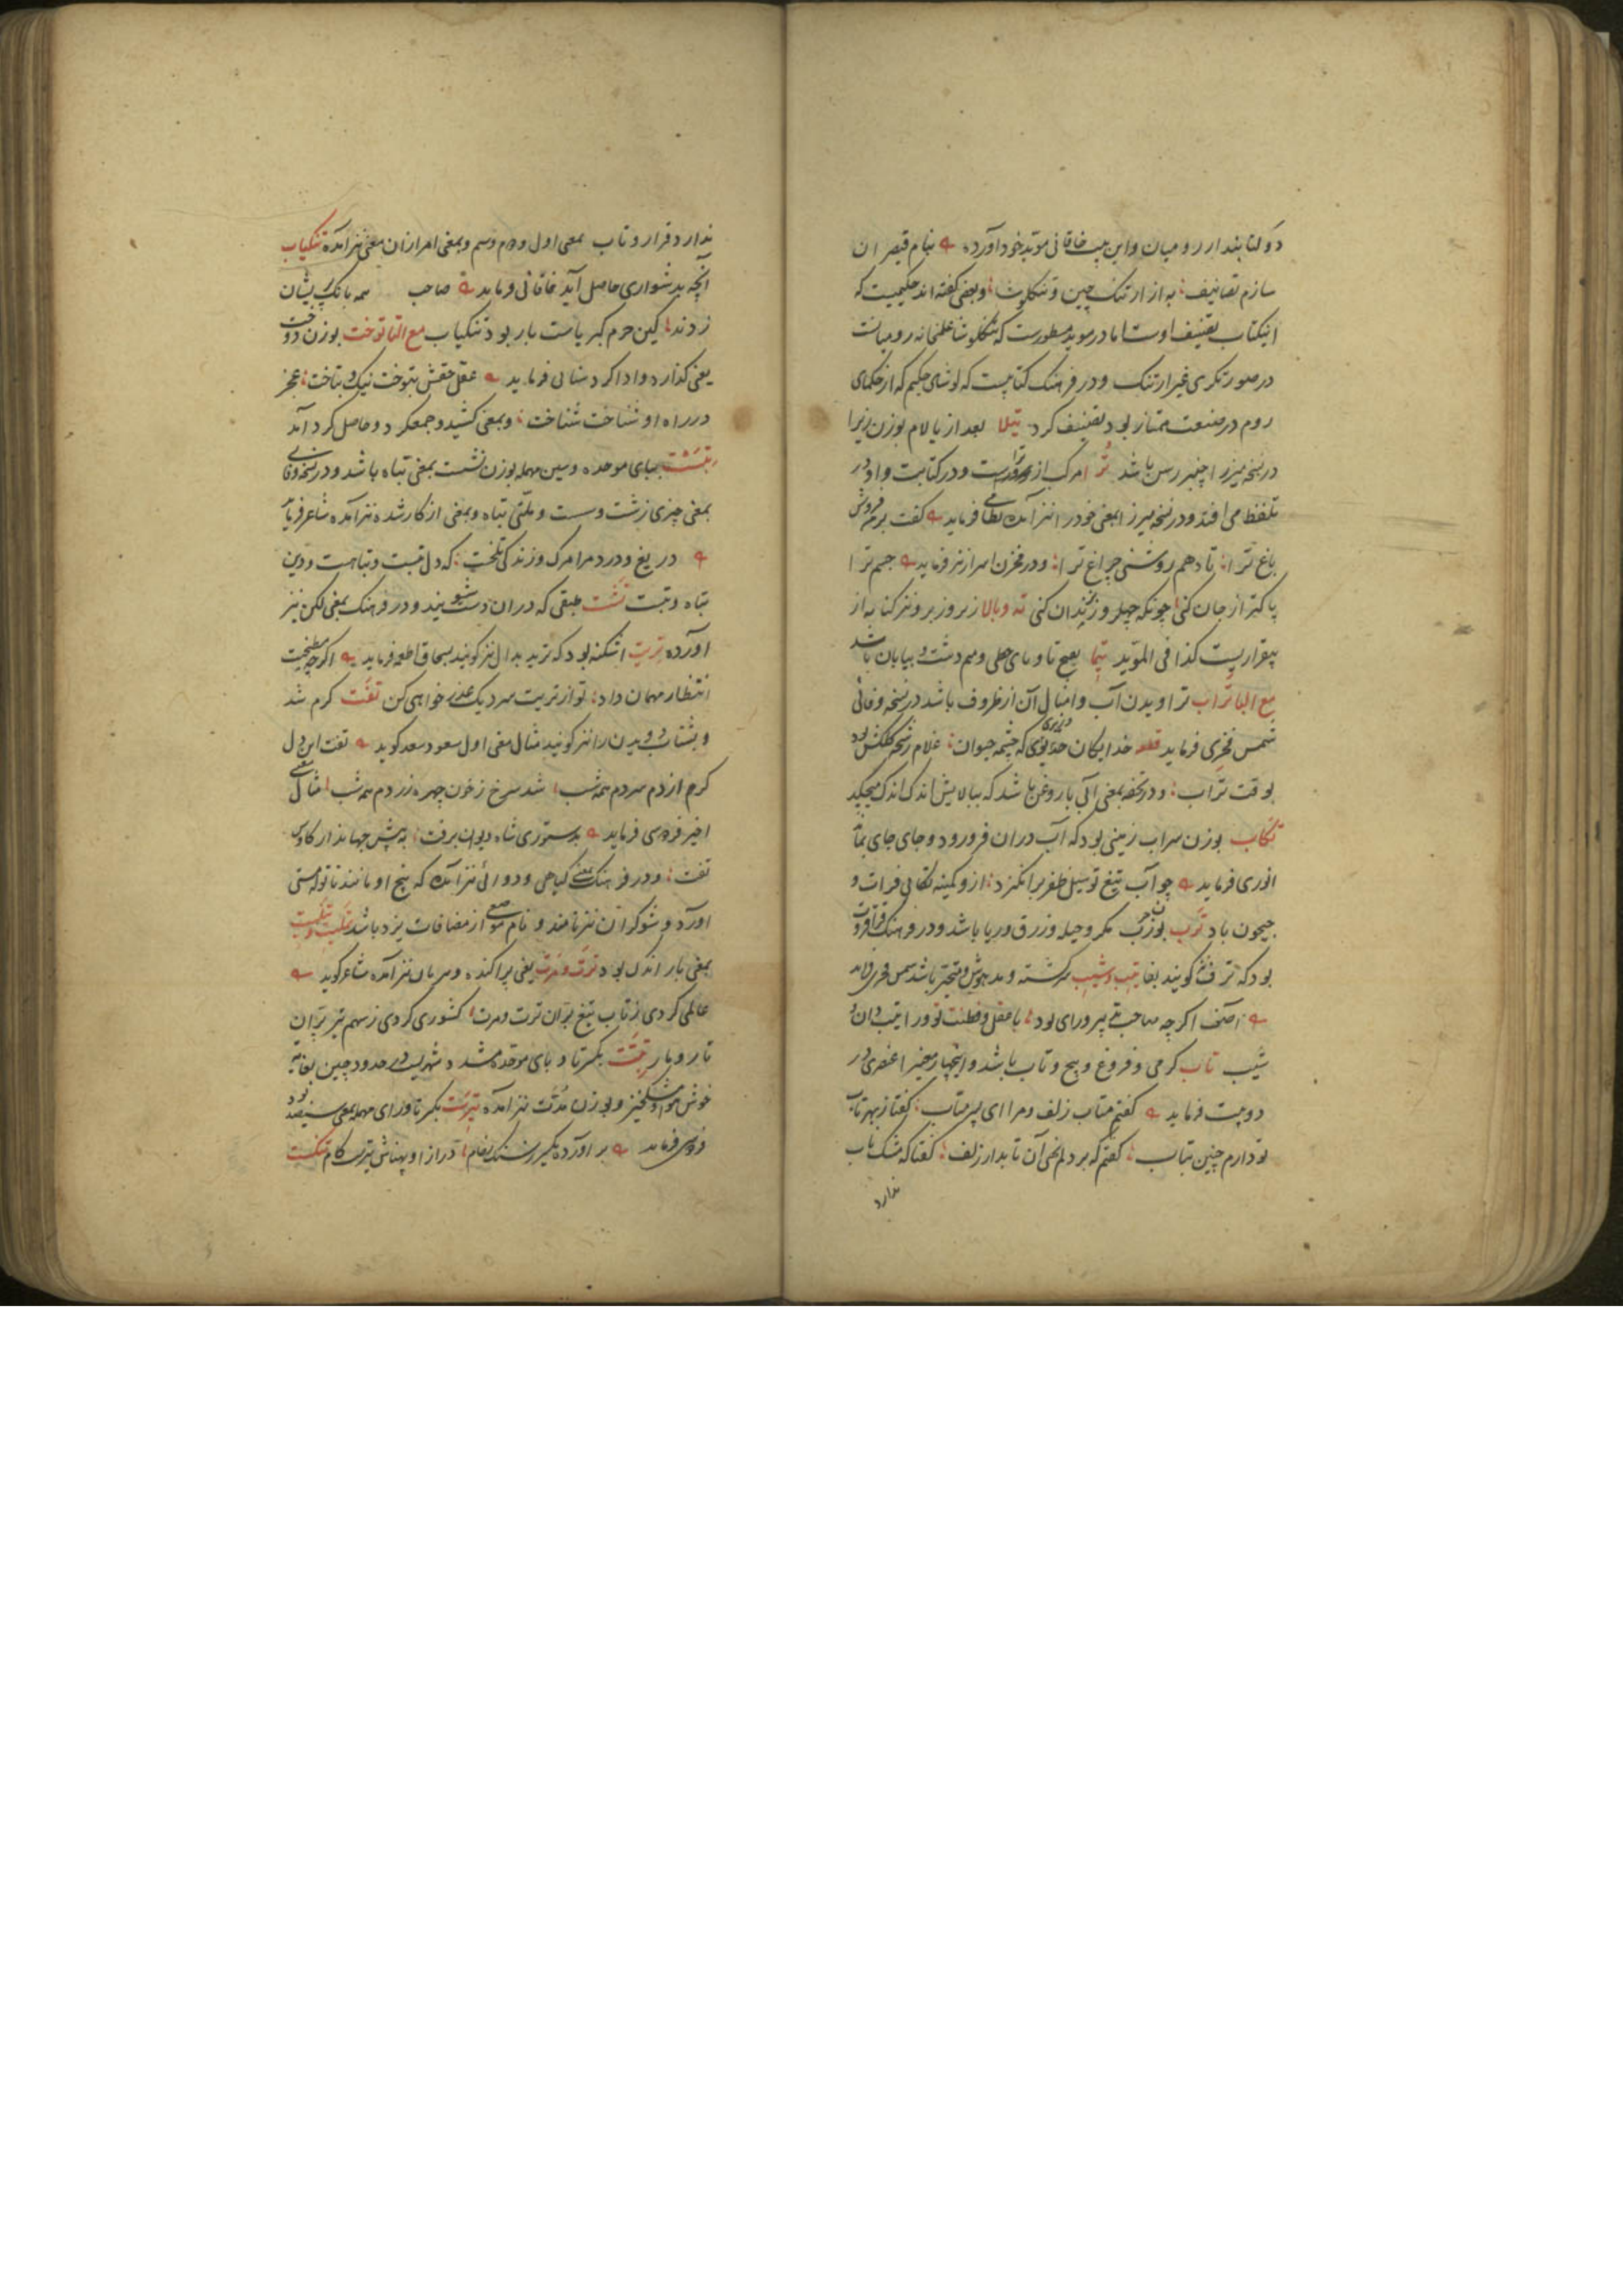 دو کتابند از رومیان و این بیت خاقانی موید خود آورده بنام قیصران
سازم تصانیف به از ارتنک چین و تنکلوشا و بعضی کفته اند حکیمیست که
اینکتاب تصنیف اوست اما در موید مسطورست که تنکلوشا علمخانه رومیانست
در صورتکری غیر ارتنک و در فرهنک کتابیست که لوشای حکیم که از حکمای
روم در صنعت ممتاز بود تصنیف کرد تیلا بعد از یا لام بوزن زیرا
در نسخه میرزا چنبر رسن باشد ترا مرکب از تو و راست و در کتابت واو در
تلفظ می افتد و در نسخه میرزا بمعنی خود را نیز آمده نظامی فرماید کفت
باغ ترا تا دهم روشنی چراغ ترا و در مخزن اسرار نیز فرماید جسم ترا
پاکتر از جان کنی چونکه چهل روز بزندان کنی ته و بالا زیر و زبر و نیز کنایه از
بیقراریست کذا فی الموید تیما بفتح تا و یای حطی و میم دشت و بیابان باشد
مع الباء تراب تراویدن آب و امثال آن از ظروف باشد در نسخه وفائی
شمس فخری فرماید قطعه خدایکان که چشمه حیوان غلام رشحه کلکش بود
بوقت تراب و در تحفه بمعنی آبی یا روغن باشد که ببالایش اندک اندک میچکد
تکاب بوزن سراب زمینی بود که آب دران فرو رود و جای جای بماند
انوری فرماید چو آب تیغ تو سیل ظفر برانکیزد ازو کمینه تکابی فرات و
جیحون باد ترب بوزن مکر و حیله و زرق و ریا باشد و در فرهنک
بود که ترف کویند بغایت تیب و شیب سرکشته و مدهوش و متحیر باشد شمس فخری فرماید
آصف اکر چه صاحب تدبیر و رای بود با عقل و فطنت تو ورا تیب دان و
شیب تاب کرمی و فروغ و پیچ و تاب باشد و اینچهار معنی را عنصری در
دو بیت فرماید کفتم متاب زلف و مرا ای پسر متاب کفتا ز بهر تاب
تو دارم چنین بتاب کفتم که بر دلم نهی آن تابدار زلف کفتا که مشک ناب
ندارد
ندارد قرار و تاب بمعنی اول و دوم و سیم و بمعنی امر ازان معنی نیز آمده تنکیاب
آنچه بدشواری حاصل آید خاقانی فرماید صاحب همه بانک بر ایشان
زدند کین حرم کبریاست بار بود تنکیاب مع التا توخت بوزن دوخت
یعنی کذارد و ادا کرد سنائی فرماید عقل حقش بتوخت نیک بتاخت عجز
در راه او شناخت شناخت و بمعنی کشید و جمع کرد و حاصل کرد آمد
تبست ببای موحده و سین مهمله بوزن نشست بمعنی تباه باشد و در نسخه وفائی
بمعنی چیزی زشت و سست و بمعنی از کار شده نیز آمده شاعر فرماید
دریغ و درد مرا مرک و زندکی تلخست که دل تبست و تباهست و دین
تباه و تبست تشت طبقی که دران دست شویند و در فرهنک بمعنی لکن نیز
آورده تریت اشکنه بود که ترید بدال نیز کویند بسحاق اطعمه فرماید اکر چه
انتظار مهمان داد تو از تریت سر دیک عذر خواهی کن تفت کرم شد
و بشتاب دویدن را نیز کویند مثال معنی اول مسعود سعد کوید تفت این دل
کرم از دم سردم همه شب شد سرخ ز خون چهره زردم همه شب مثال معنی
اخیر فردوسی فرماید بدستوری شاه دیوان برفت به پیش جهاندار کاوس
تفت و در فرهنک بمعنی کیاهی دوائی نیز آمده که بیخ او مانند ناتوله مستی
آورد و شوکران نیز نامند و نام موضعی از مضافات یزد باشد
بمعنی تار اندک بود ترت و مرت یعنی پراکنده نیز آمده شاعر کوید
عالمی کردی ز تاب تیغ بران ترت و مرت کشوری کردی ز سهم تیر پران
تار و مار تبت بکسر تا و بای موحده مشدد شهریست در حدود چین بغایت
خوش هوا و مشکخیز و بوزن مدت نیز آمده تیرست بکسر تا و رای مهمله بمعنی سیصد بود
فردوسی فرماید بر آورده یکسر ز سنک رخام دراز او پهناش تیرست کام تنکست